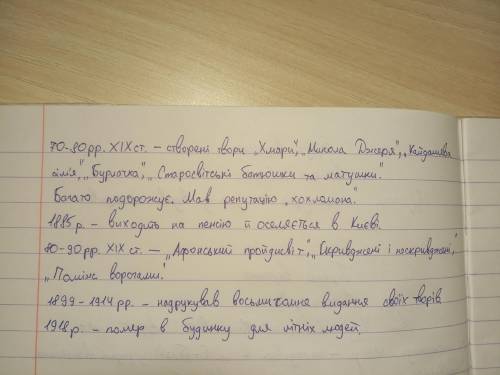 70-80рр. XIX ст. – створені твори „Хмари", „Микола Джеря", „Кайдашева
сім'я", „Бурлачка", „Старосвітські батюшки та матушки".
Багато подорожує. Мав репутацію „хохломана".
1885 р. – виходить на пенсію й оселяється в Києві.
80-90рр. XIX ст. – „Афонський пройдисвіт", „Скривджені і нескривджені",
„Поміж ворогами".
1899-1914 рр. – надрукував восьмитомне видання своїх творів
1918 р. – помер в будинку для літніх людей.